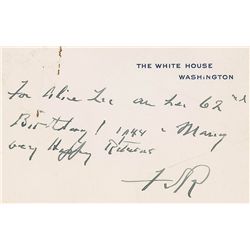 THE WHITE HOUSE
WASHINGTON
For Alice Lee on her 62nd
Birthday! 1944 - Many
very Happy Returns
FDR